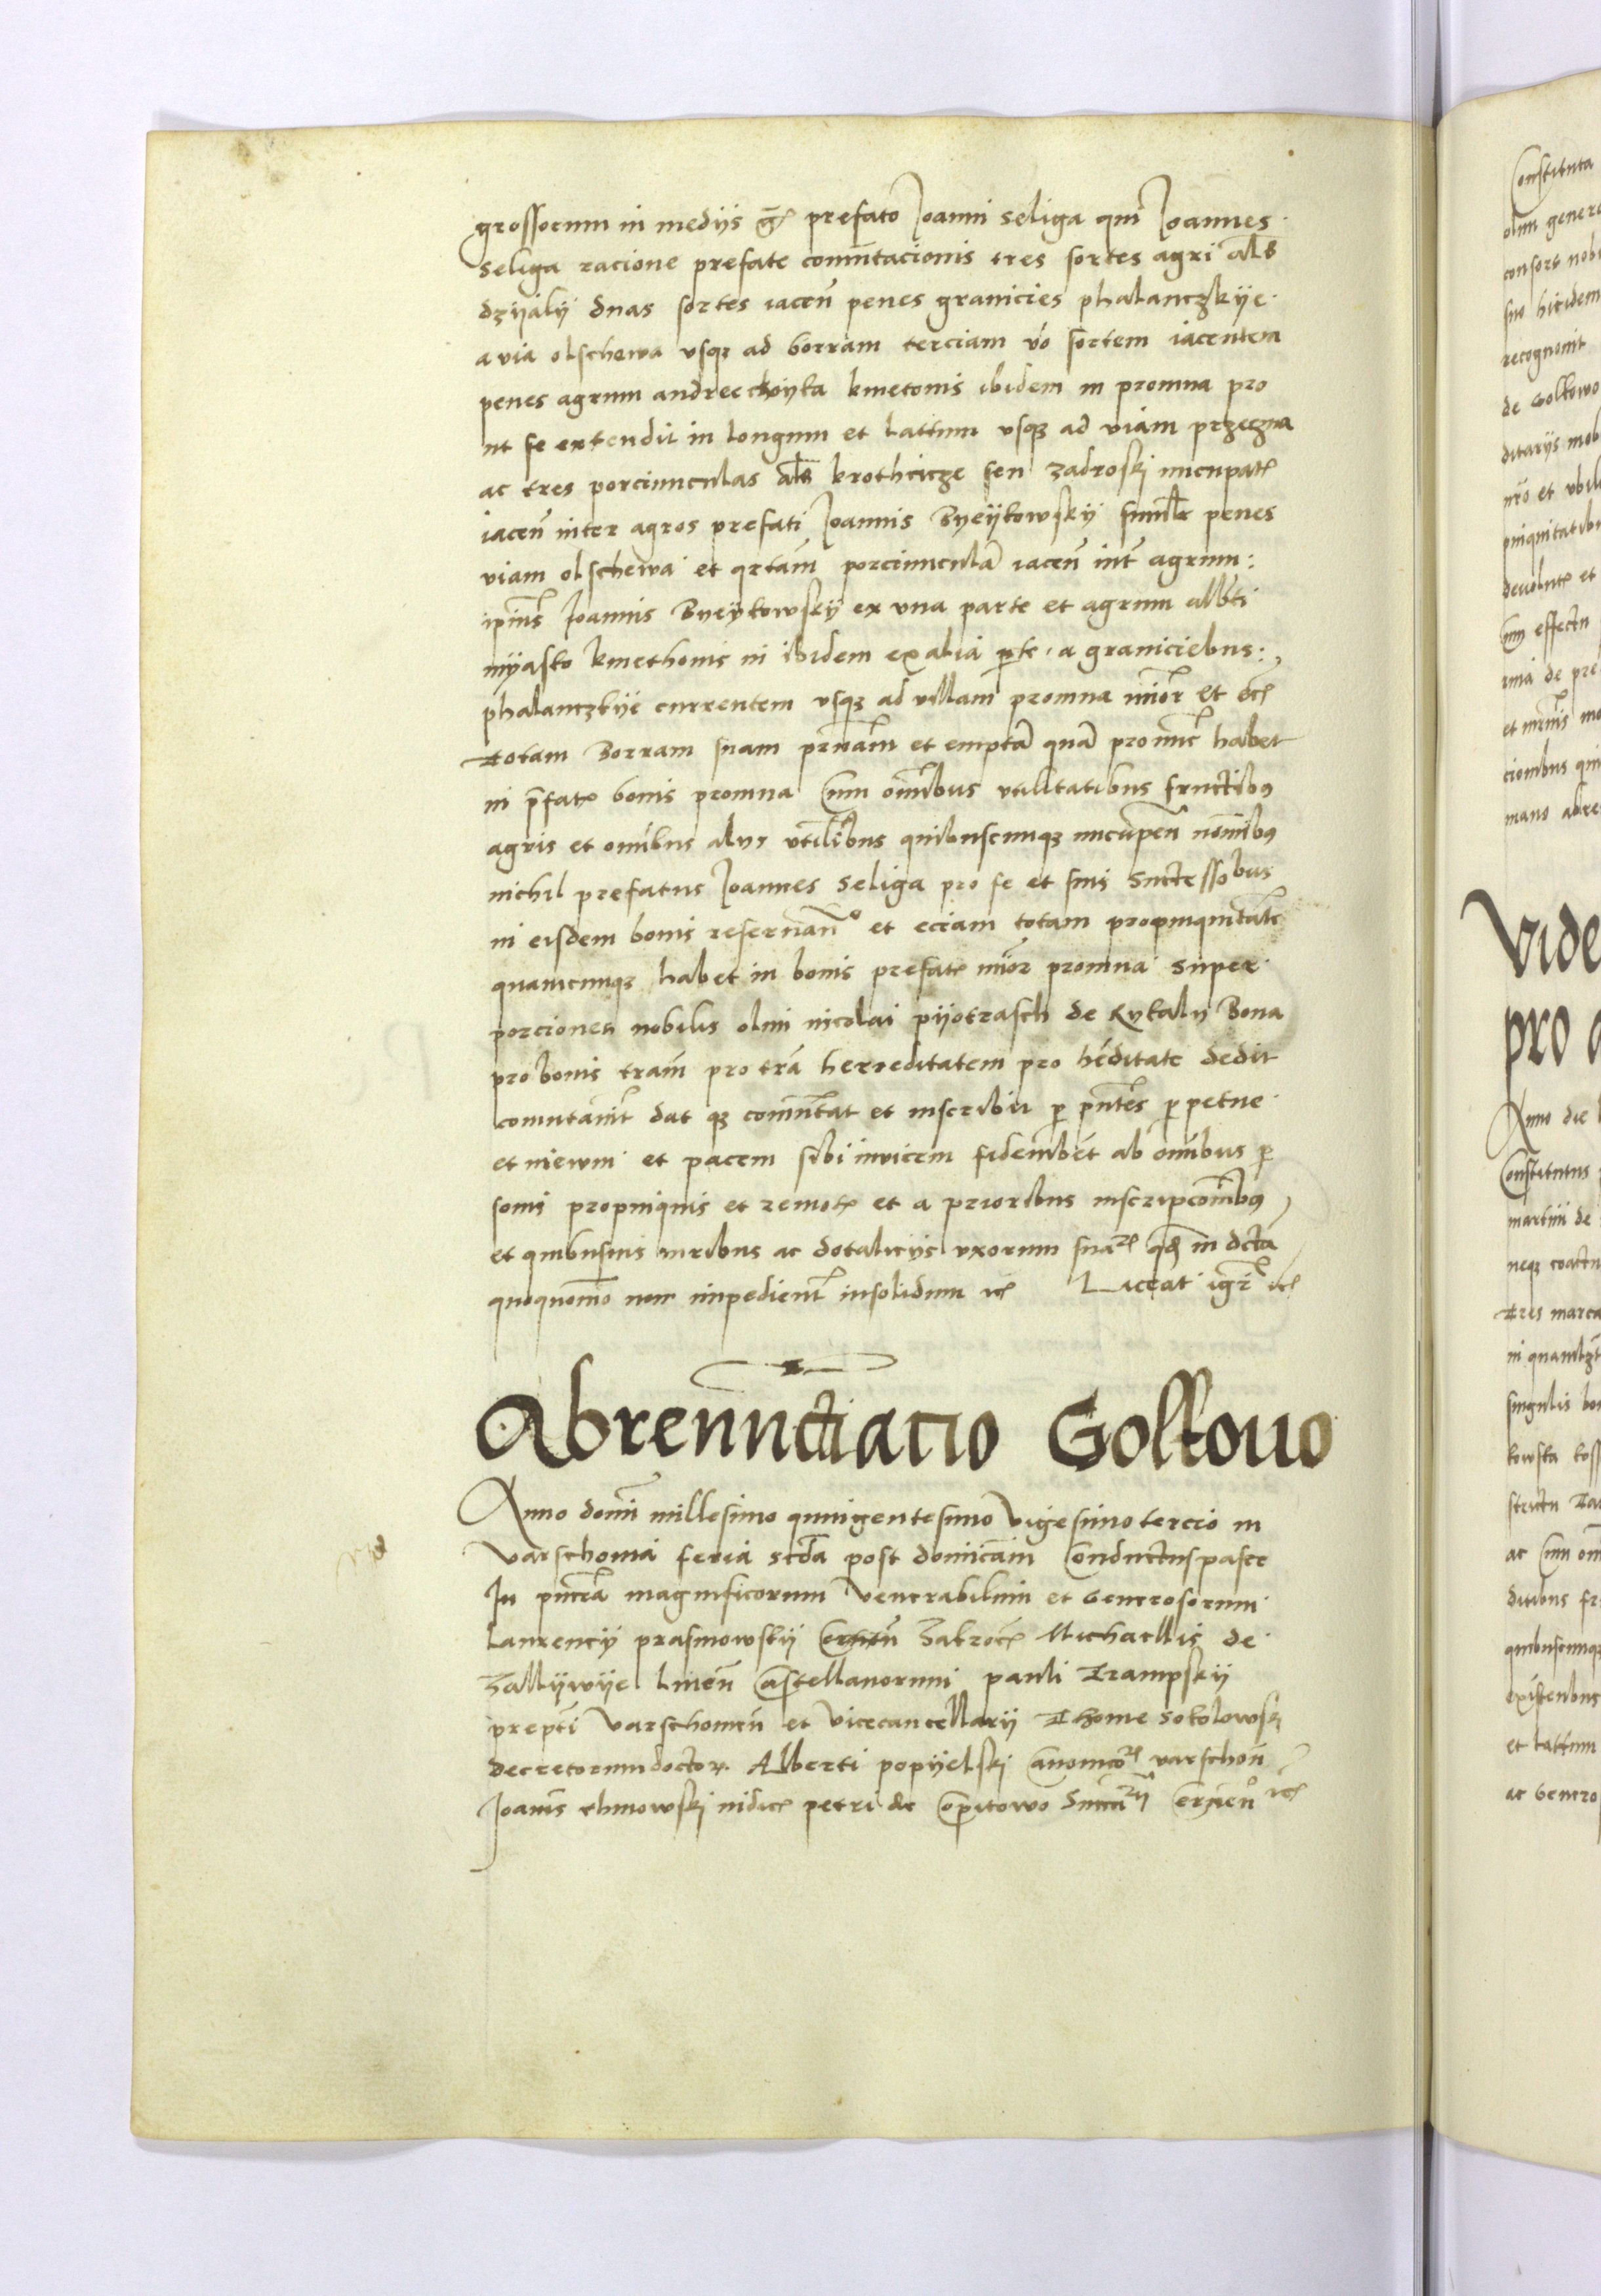 grossorum in medijs gr̄ prefato Joanni seliga qui Joannes
seliga racione prefate commutacionis tres sortes agri als
dzyaly duas sortes iaceñ penes granicies phalanczkye
a via olschewa vsqz ad borram terciam v̄o sortem iacentem
penes agrum andree kmetonis ibidem in promna pro
ut se extendit in longum et lattum vsqz ad viam przeczna
ac tres porciunculas als krothczicze seu zadroski nuncupat
iaceñ inter agros prefati Joannis Byeykowsky simile penes
viam olschewa et qrtam porciunculā iaceñ int agrum
ipius Joannis Byeykowsky ex vna parte et agrum albti
myasko kmethonis in ibidem ex alia pte a graniciebus
phalanczkye currentem vsqz ad villam promna minor et etc
totam Borram suam prnam et emptā quā pro nunc habet
in p̄fatis bonis promna cum omībus vtilitatibus fructibq
agris et omībus alys vtilibus quibuscumqz nuncupeñ nomībq
nichil prefatus Joannes seliga pro se et suis Successobus
in eisdem bonis reseruan̄o et eciam totam propinquitate
quamcumqz habet in bonis prefate minor promna super
porcionem nobilis olim nicolai pyotrasch de Rykaly Bona
pro bonis tram pro trā hereditatem pro heditate dedit
comutauit dat qz commutat et inscribit p pntes ppetue
et in ewm et pacem sibi inuicem fidem bet ab omibus p
sonis propinquis et remotis et a prioribus inscripcoibq
et quibusuis iuribus ac dotalicijs vxorum suarꝫ qd in dcta
quoquomo non impedient insolidum etc Liceat igr etc
Abrenuncciacio Golkouo
Anno domi millesimo quingentesimo vigesimo tercio in
varschouia feria scda post domicam Conductus pasce
In pntia magnificorum Venerabilium et Generosorum
Laurency prasmowsky Cernen Zakrocz Michaellis de
Zallywye liuen Castellanorum pauli Trampsky
prepti varschouien et vicecancellarij Thome Sokolowski
decretorum doctor Alberti popyelski Canonicorꝫ varschoñ
Joanis chmowski iudic petri de Copitowo Succarij Cernen etc
Constituta
olim genero
consors nobi
suo hicidem
recognouit
de Golkowo
ditarijs mob
nro et vbil
pinquitatibu
deuolute et
cum effectu
ma de pre
cionibus qui
mano abre
Vide
pro a
Anno die
Constitutus
martini de
neqz coactu
Tres marca
singulis bo
strictu
ditibus fr
quibuscumqz
existenbus
et lattum
ac Genero